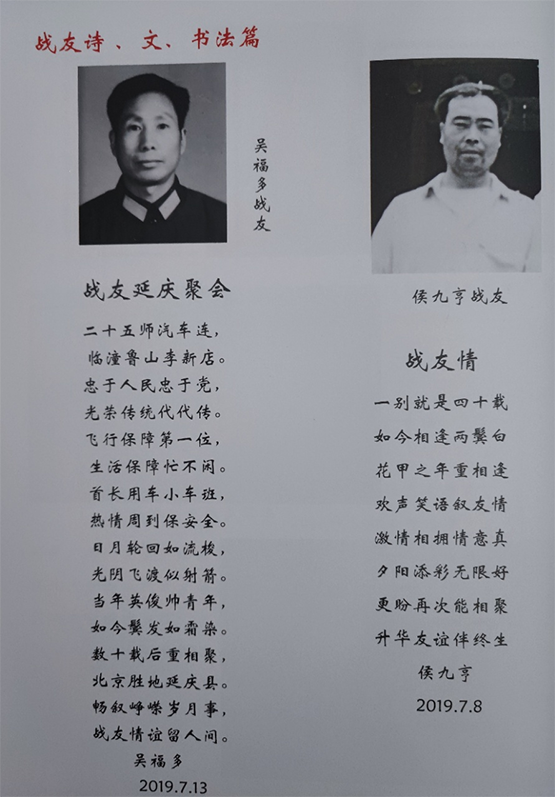 战友诗、文、书法篇
吴福多战友
战友延庆聚会
二十五师汽车连，
临潼鲁山李新店。
忠于人民忠于党，
光荣传统代代传。
飞行保障第一位，
生活保障忙不闲。
首长用车小车班，
热情周到保安全。
日月轮回如流梭，
光阴飞渡似射箭。
当年英俊帅青年，
如今鬓发如霜染。
数十载后重相聚，
北京胜地延庆县。
畅叙峥嵘岁月事，
战友情谊留人间。
吴福多
2019.7.13
侯九亨战友
战友情
一别就是四十载
如今相逢两鬓白
花甲之年重相逢
欢声笑语叙友情
激情相拥情意真
夕阳添彩无限好
更盼再次能相聚
升华友谊伴终生
侯九亨
2019.7.8